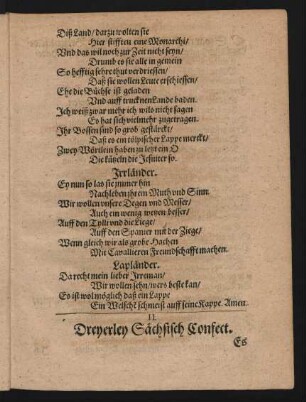 Diß Land/ darzu wolten sie
Hier stifften eine Monarchi/
Vnd das wil noch zur Zeit nicht seyn/
Drumb es sie alle in gemein
So hefftig sehre thut verdriessen/
Daß sie wollen Leute erschiessen/
Ehe die Büchse ist geladen
Vnd auff trucknen Lande baden.
Ich weiß zwar mehr ich wils nicht sagen
Es hat sich viel mehr zugetragen.
Ihr Bossen sind so grob gestückt/
Daß es ein tölpischer Lappe merckt/
Zwey Wörtlein haben zu letzt ein O
Die kützeln die Jesuiter so.
Irrländer.
Ey nun so las sie immer hin
Nachleben ihrem Muth und Sinn.
Wir wollen vnsere Degen vnd Messer/
Auch ein wenig wetzen besser/
Auff den Tylli vnd die Liege/
Auff den Spanier mit der Ziege/
Wenn gleich wir als grobe Hachen
Mit Cavallieren Freundschafft machen.
Lapländer.
Da recht mein lieber Irrman/
Wir wollen sehn/ wers beste kan/
Es ist wol möglich daß ein Lappe
Ein Welschẽ schmeist auff seine Kappe. Amen.
II.
Dreyerley Sächsisch Confect.
Es